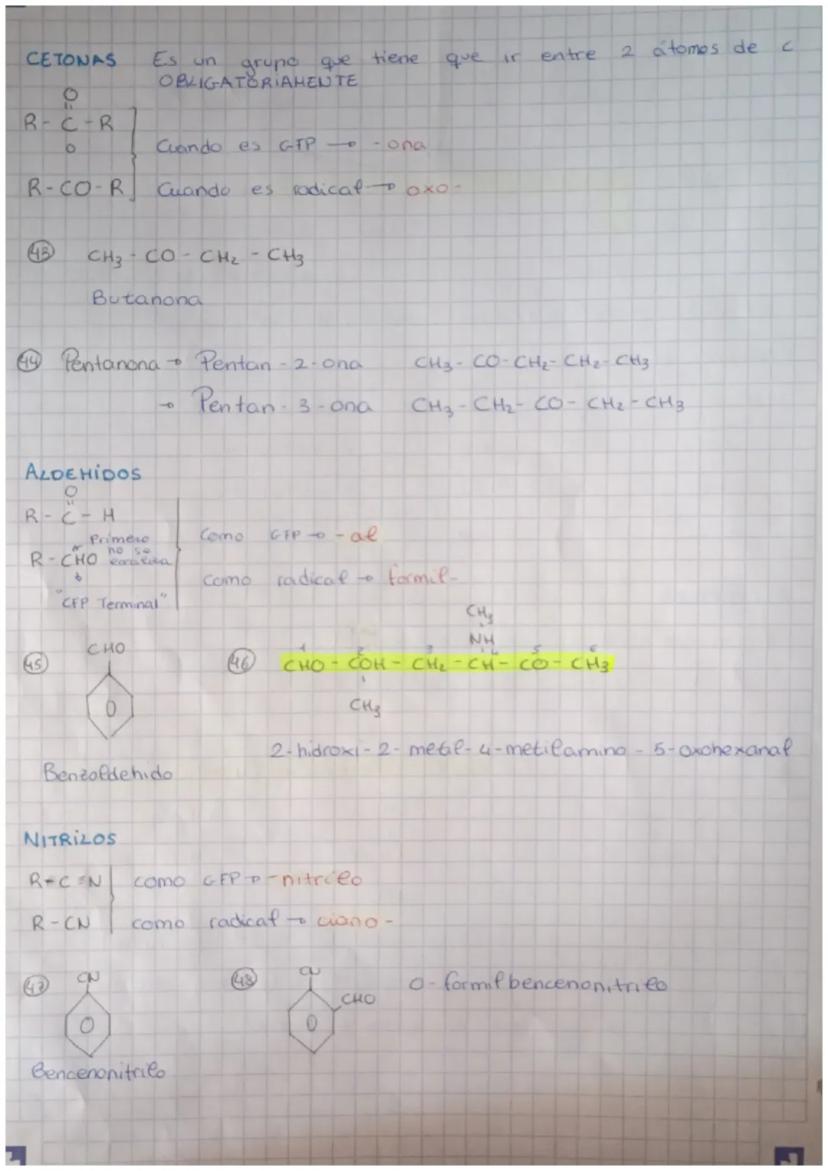 CETONAS Es un grupo que tiene que ir entre 2 átomos de C
OBLIGATORIAMENTE
O
R - C - R
Cuando es GFP → -ona
R - CO - R Cuando es radical → oxo-
43 CH3 - CO - CH2 - CH3
Butanona
44 Pentanona → Pentan - 2 - ona CH3 - CO - CH2 - CH2 - CH3
→ Pentan - 3 - ona CH3 - CH2 - CO - CH2 - CH3
ALDEHIDOS
O
R - C - H
Primero
Como GFP → -al
R - CHO no se
como radical → formil-
"CFP Terminal"
CH3
NH
CHO
45
46 CHO - COH - CH2 - CH - CO - CH3
1 2 3 4 5 6
CH3
2-hidroxi-2-metil-4-metilamino-5-oxohexanal
Benzaldehido
NITRILOS
R-C≡N como GFP → -nitrilo
R - CN como radical → ciano -
47 CN
48 CN
CHO
o-formilbencenonitrilo
Bencenonitrilo